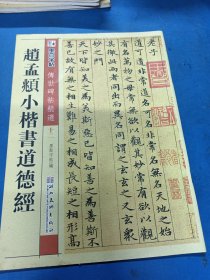 趙孟頫小楷書道德經
傳世碑帖精選
老子
道可道非常道名可名非常名無名天地之始
有名萬物之母常無欲以觀其妙常有欲以觀
其徼此兩者同出而異名同謂之玄玄之又玄衆
妙之門
天下皆知美之為美斯惡已皆知善之為善斯不
善已故有無之相生難易之相成長短之相形高